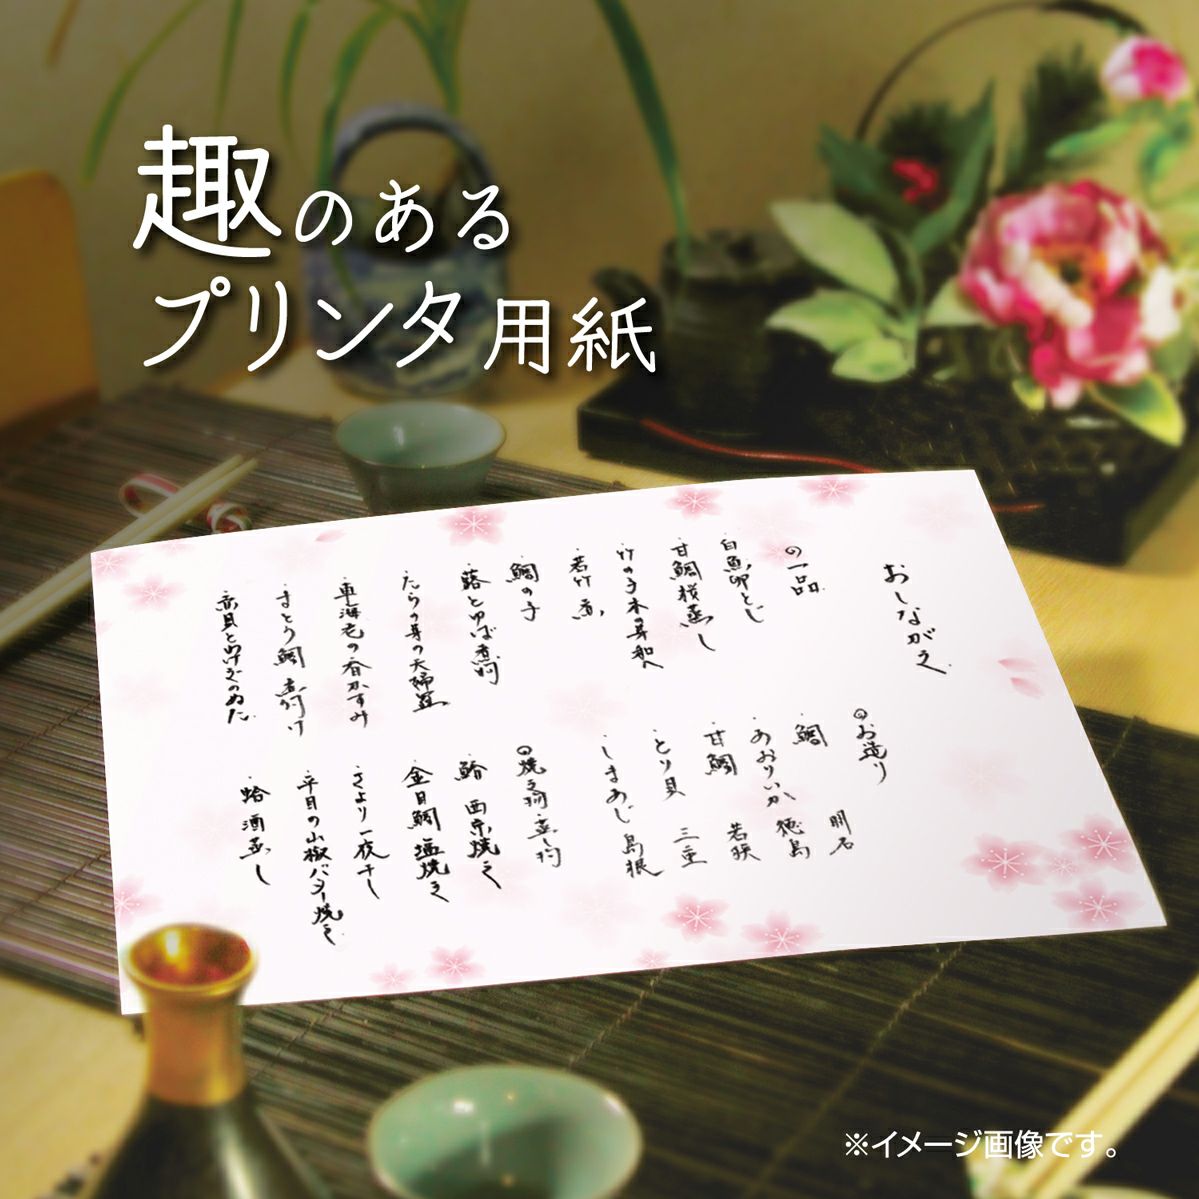 趣のある
プリンタ用紙
おしながき
の一品
白魚卵とじ
甘鯛桜蒸し
竹の子木の芽和へ
若竹煮
鯛の子
蕗とゆば煮物
たらの芽の天婦羅
車海老の香かすみ
まとう鯛煮付け
赤貝とねぎのぬた
お造り
鯛 明石
あおりいか 徳島
甘鯛 若狭
とり貝 三重
しまあじ 島根
焼き物蒸し物
西京焼き
金目鯛塩焼き
さより一夜干し
平目の山椒バター焼き
蛤酒蒸し
※イメージ画像です。